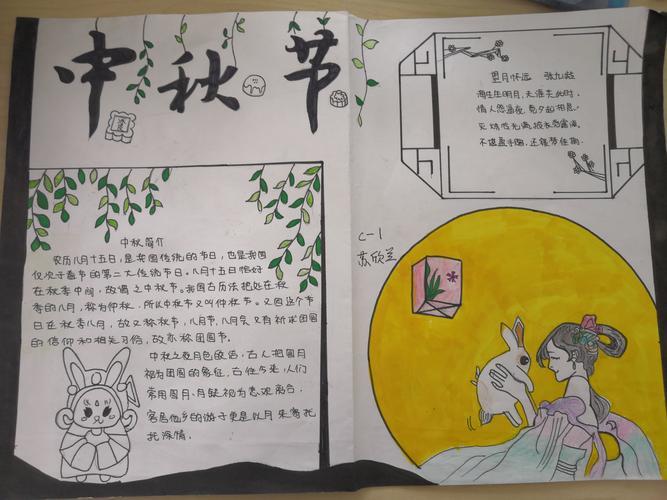 中秋节
中秋简介
农历八月十五日，是我国传统的节日，也是我国
仅次于春节的第二大传统节日。八月十五日恰好
在秋季中间，故谓之中秋节。我国古历法把处在秋
季的八月，称为仲秋，所以中秋节又叫仲秋节。又因这个节
日在秋季八月，故又称秋节，八月节，八月会又有祈求团圆
的信仰和相关习俗，故亦称团圆节。
中秋之夜月色皎洁，古人把圆月
视为团圆的象征，古往今来，人们
常用圆月、月缺视为悲欢离合，
客居他乡的游子更是以月来寄托
托深情。
望月怀远 张九龄
海上生明月，天涯共此时。
情人怨遥夜，竟夕起相思。
灭烛怜光满，披衣觉露滋。
不堪盈手赠，还寝梦佳期。
C-1
苏欣兰